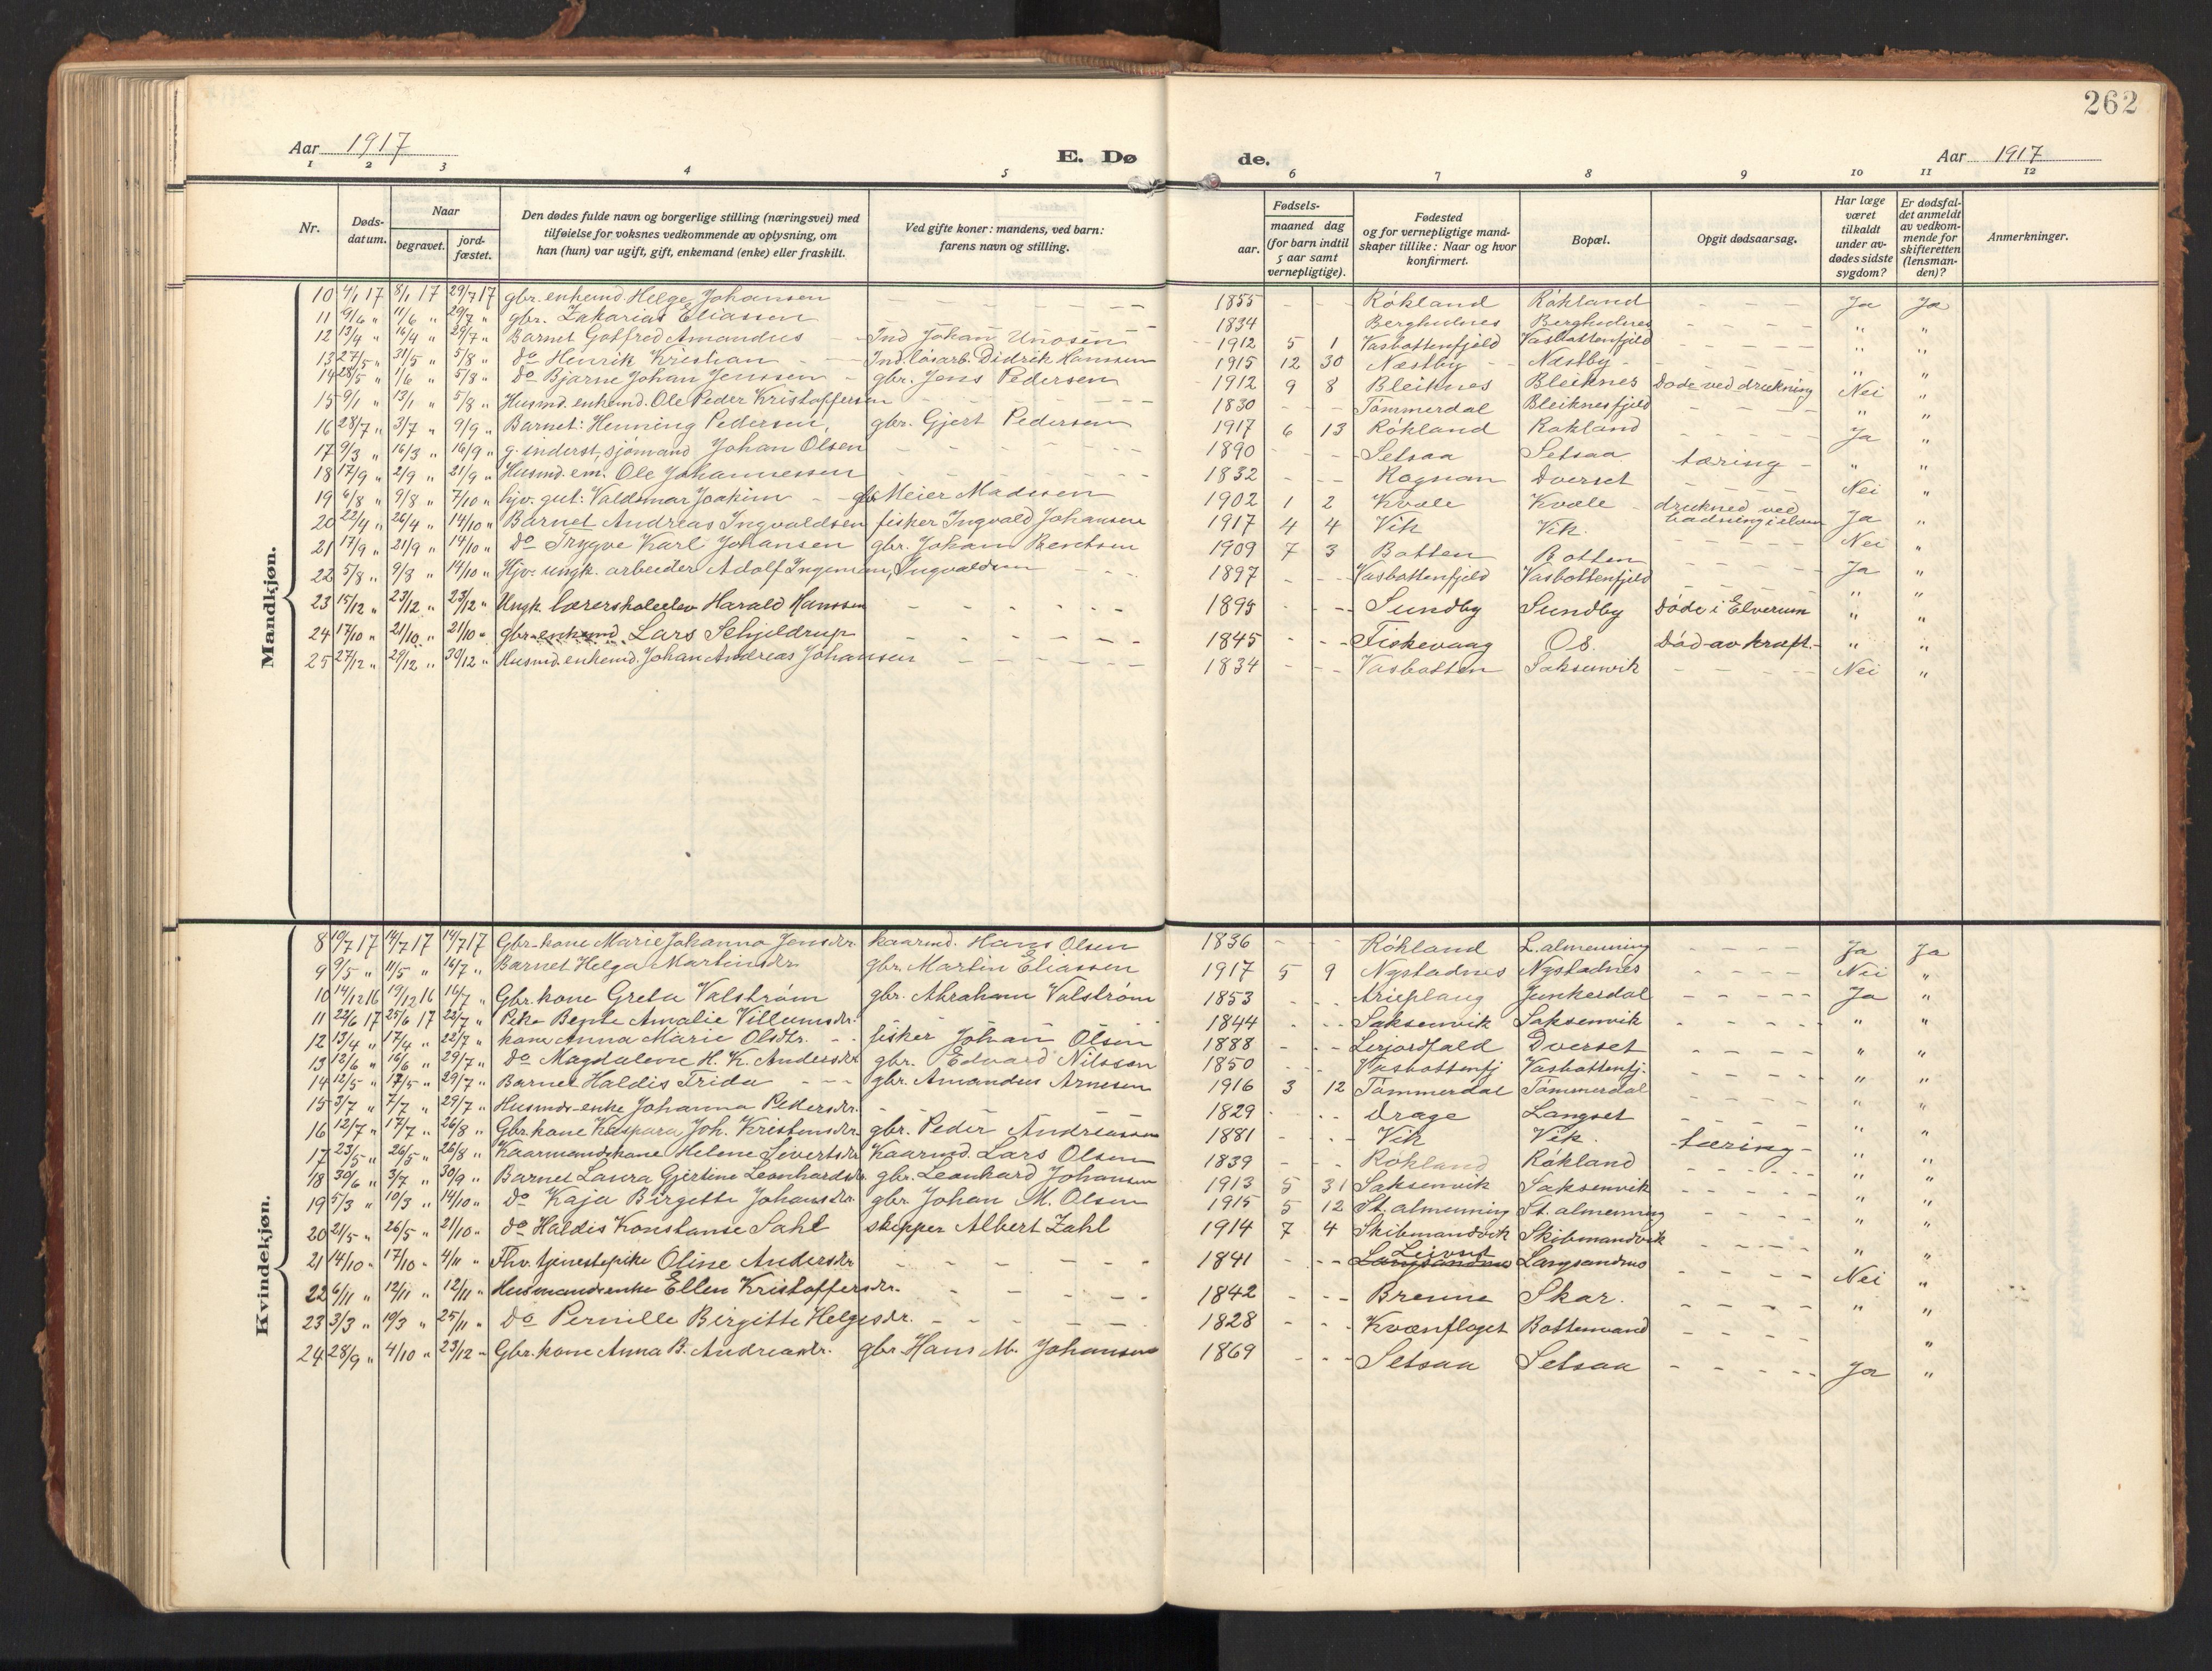 262
Aar 1917
E. Dø
de.
Aar 1917
1 2 3 4 5 6 7 8 9 10 11 12
Nr.
Døds-
datum.
Naar
begravet.
jord-
fæstet.
Den dødes fulde navn og borgerlige stilling (næringsvei) med
tilføielse for voksnes vedkommende av oplysning, om
han (hun) var ugift, gift, enkemand (enke) eller fraskilt.
Ved gifte koner: mandens, ved barn:
farens navn og stilling.
Fødsels-
aar.
maaned dag
(for barn indtil
5 aar samt
vernepligtige).
Fødested
og for vernepligtige mand-
skaper tillike: Naar og hvor
konfirmert.
Bopæl.
Opgit dødsaarsag.
Har læge
været
tilkaldt
under av-
dødes sidste
sygdom?
Er dødsfal-
det anmeldt
av vedkom-
mende for
skifteretten
(lensman-
den)?
Anmerkninger.
Mandkjøn.
10 4/1 17 8/1 17 29/7 17 gbr. enkemd. Helge Johansen - - - - 1855 - - - Rökland Rökland - - - - Ja Ja
11 9/6 " 11/6 " 29/7 " gbr. Zakarias Eliassen 1834 Berghulnes Berghulnes - - - - " "
12 13/4 " 16/4 " 29/7 " Barnet Gotfred Amandus - Ind Johan Unosen 1912 5 1 Vasbottenfjeld Vasbottenfjeld - - - - " "
13 27/5 " 31/5 " 5/8 " do Henrik Kristian - Ind. løsarb. Didrik Hanssen 1915 12 30 Næstby - Næstby - - - - " "
14 28/5 " 1/6 " 5/8 " do Bjarne Johan Jenssen - gbr. Jens Pedersen 1912 9 8 Bleiknes Bleiknes Døde ved drukning Nei "
15 9/1 " 13/1 " 5/8 " Husmd. enkemd. Ole Peder Kristoffersen - - - - 1830 - - - Tömmerdal Bleiknesfjeld - - - - " "
16 28/7 " 3/7 " 9/9 " Barnet: Henning Pedersen, gbr. Gjert Pedersen 1917 6 13 Rökland Rökland - - - - Ja "
17 9/3 " 16/3 " 16/9 " g. inderst, sjömand Johan Olsen - - - - 1890 - - - Setsaa Setsaa tæring - " "
18 17/9 " 2/9 " 21/9 " Husmd. em. Ole Johannessen - - - - 1832 - - - Rognan Dverset - - - - Nei "
19 6/8 " 9/8 " 7/10 " hjv. gut: Valdemar Joakim - gbr Meier Madssen 1902 1 2 Kvæle Kvæle - druknet ved badning i elven "
20 22/4 " 26/4 " 14/10 " Barnet Andreas Ingvaldsen fisker Ingvald Johansen 1917 4 4 Vik Vik. Ja "
21 17/9 " 21/9 " 14/10 " do Trygve Karl Johansen gbr. Johan Bentsen 1909 7 3 Botten Botten - - - - Nei "
22 5/8 " 9/8 " 14/10 " Hjv. ungk. arbeider Adolf Ingeman, Ingvaldsen 1897 - - - Vasbottenfjeld Vasbottenfjeld - - - - Ja "
23 15/12 " 23/12 " 23/12 " Ungk. lærerskoleelev Harald Hanssen - - - - 1895 - - - Sundby Sundby Døde i Elverum " "
24 17/10 " 21/10 " 21/10 " gbr. enkemd. Lars Schjeldrup - - - - 1845 - - - Fiskevaag Os. Död av kræft. - " "
25 27/12 " 29/12 " 30/12 " Husmd. enkemd. Johan Andreas Johansen - - - - 1834 - - - Vasbotten Saksenvik - - - - Nei "
Kvindekjøn.
8 10/7 17 14/7 17 14/7 17 Gbr-kone Marie Johanna Jensdtr. kaarmd. Hans Olsen 1836 - - Rökland L. almenning - - - - Ja Ja
9 9/5 " 11/5 " 16/7 " Barnet Helga Martinsdtr gbr. Martin Eliassen 1917 5 9 Nystadnes Nystadnes - - - - Nei "
10 14/12 16 19/12 16 16/7 " Gbr. kone Greta Valström gbr. Abraham Valström 1853 - - - Arieplaug Junkerdal - - - - Ja "
11 22/6 17 25/6 17 22/7 " Pike Bente Amalie Villumsdtr. 1844 - - - Saksenvik Saksenvik - - - - " "
12 13/4 " 17/4 " 22/7 " kone Anna Marie Olsdtr. - - fisker Johan Olsen 1888 - - - Dverset - - - - " "
13 12/6 " 16/6 " 29/7 " do Magdalene H. K. Andersdtr gbr. Edvard Nilssen 1850 - - - Vasbottenfj Vasbottenfj. - - - - " "
14 12/5 " 17/5 " 29/7 " Barnet Haldis Frida - - - gbr. Amandus Arnesen 1916 3 12 Tömmerdal Tömmerdal - - - - " "
15 3/7 " 7/7 " 29/7 " Husmds-enke Johanna Pedersdtr. - - - - 1829 - - - Drage Langset - - - - " "
16 12/7 " 17/7 " 26/8 " Gbr. kone Kaspara Joh. Kristensdtr. gbr. Peder Andreassen 1881 - - - Vik Vik. tæring - " "
17 23/5 " 26/5 " 26/8 " Kaarmandskone Helene Sivertsdtr Kaarmd. Lars Olsen 1839 - - - Rökland Rökland - - - - " "
18 30/6 " 3/7 " 30/9 " Barnet Laura Gjertine Leonhardsdtr. gbr. Leonhard Johansen 1913 5 31 Saksenvik Saksenvik - - - - " "
19 5/3 " 10/3 " 14/10 " do Kaja Birgitte Johansdtr. gbr. Johan M. Olsen 1915 5 12 St. almenning St. almenning - - - - " "
20 21/5 " 26/5 " 21/10 " do Haldis Konstanse Sahl skipper Albert Zahl 1914 7 4 Skibmandvik Skibmandvik - - - - " "
21 14/10 " 17/10 " 4/11 " Fhv. tjenestepike Oline Andersdtr - - - - 1841 - - - Langsandmo Langsandmo - - - - Nei "
22 6/11 " 12/11 " 12/11 " Husmandsenke Ellen Kristoffersdtr. - - - - 1842 - - - Brenne Skar. - - - - " "
23 3/3 " 19/3 " 25/11 " do Pernille Birgitte Helgesdtr. - - - - 1828 - - - Kvænflaget Bottenvand - - - - "
24 28/9 " 4/10 " 23/12 " Gbr. kone Anna B. Andreasdtr. gbr. Hans M. Johansen 1869 - - - Setsaa Setsaa - - - - Ja "